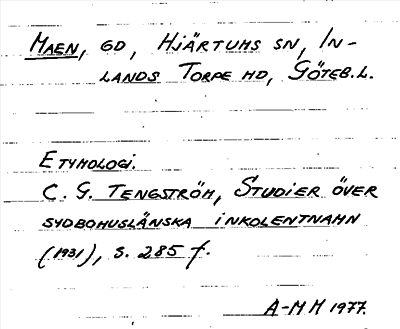 MAEN, GD, HJÄRTUMS SN, IN-
LANDS TORPE HD, GÖTEB.L.
ETYMOLOGI.
C. G. TENGSTRÖM, STUDIER ÖVER
SYDBOHUSLÄNSKA INKOLENTNAMN
(1931), S. 285 f.
A-MH 1977.